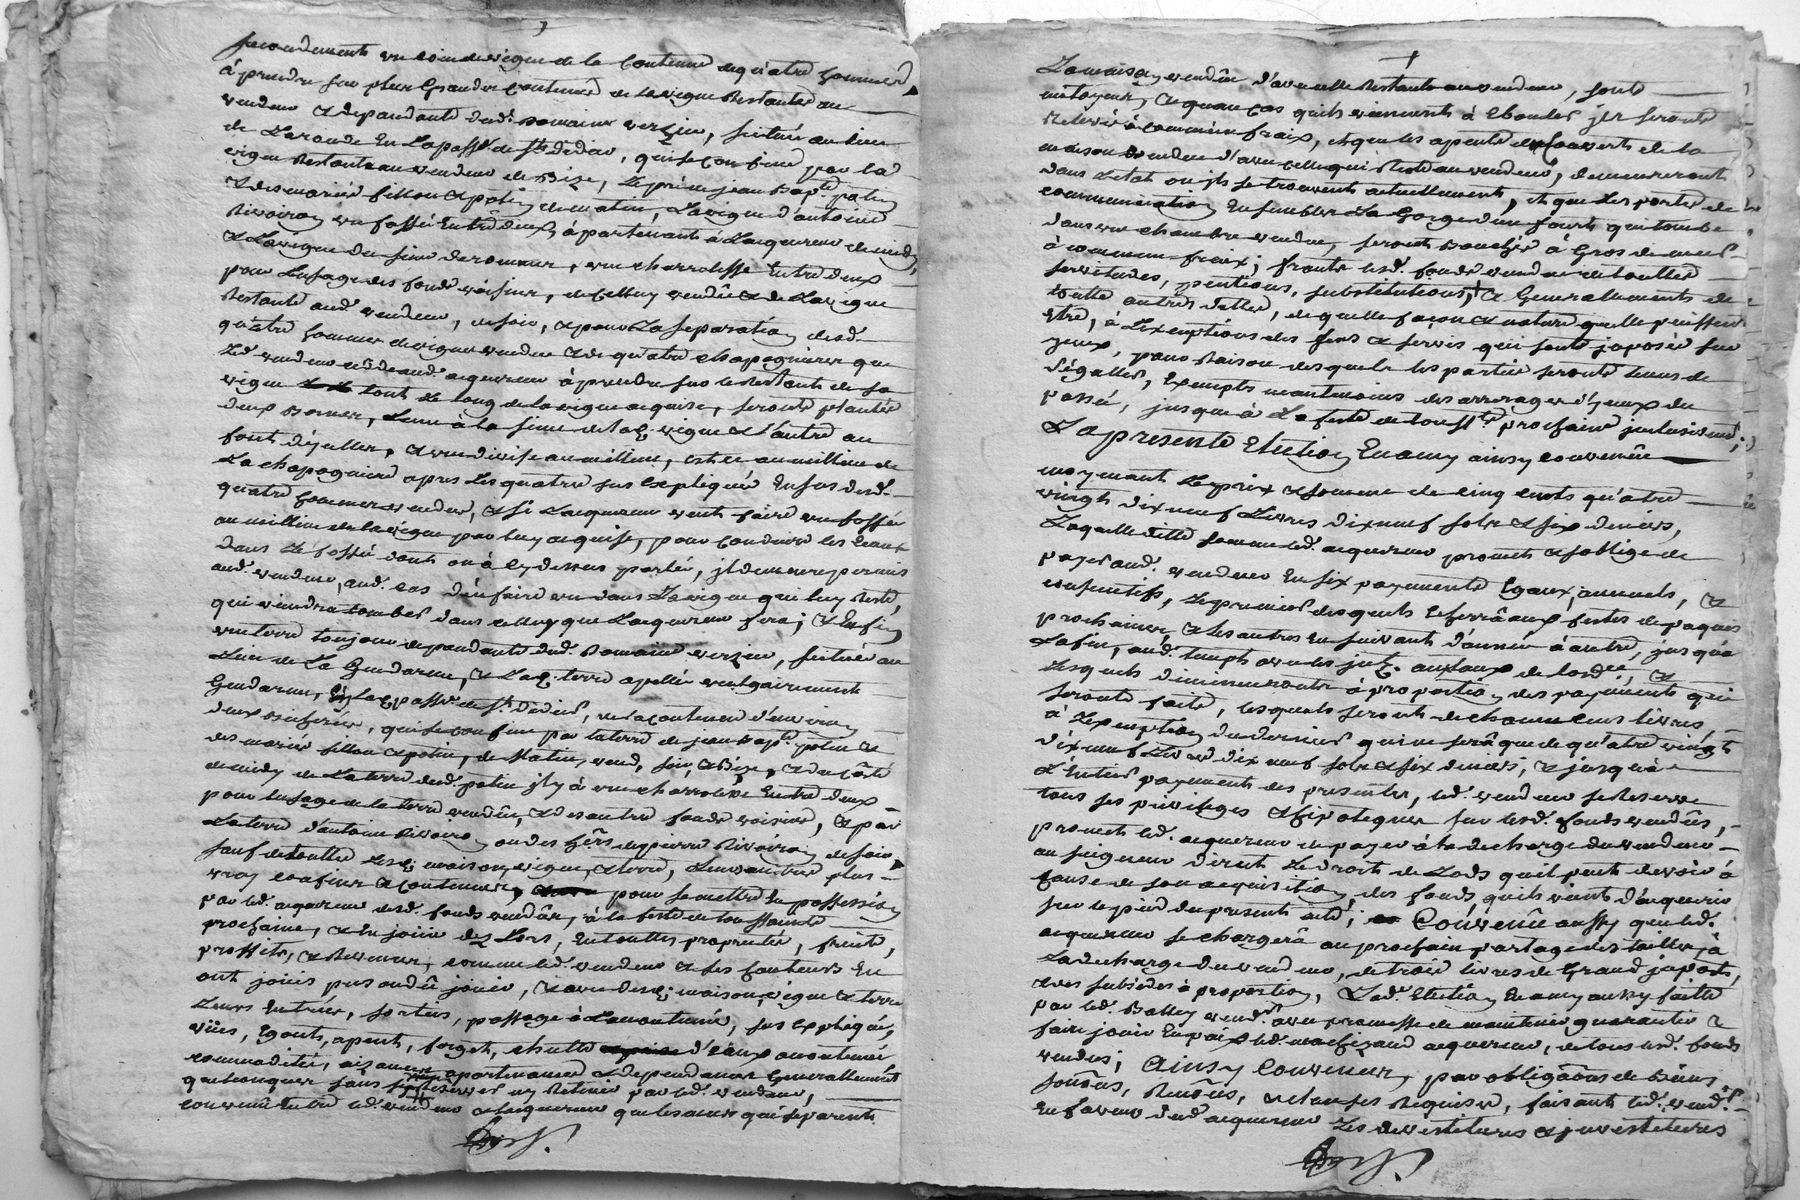 secondement un coin de vigne de la Contenue de quatre hommes
à prendre sur plus Grande Contenue de la vigne Restante au
vendeur & dependante dud. domaine verzieu, scitué au lieu
de Laronde En Laparr.e de St. didier, qui se confine par la
vigne Restante au vendeur de Bize, le pré de jean Bapt.e
& des mariés fillon & potin de matin, La vigne d'antoine
Rivoiron un fossé Entre deux apartenant à Lacquereur de midy,
& La vigne du sieur, une charrolesse Entre deux
pour Lusage des fonds voisins, de Celluy vendû & de La vigne
Restante aud. vendeur, de soir, & pour La separation desd.
quatre hommes de vigne vendue & de quatre chapognieres que
Led. vendeur aud. acquereur à prendre sur le Restant de sa
vigne tout Le long de la vigne acquise, seront plantés
deux Bornes, Lune à la sime de lad. vigne & l'autre au
font d'ycelles, & une divise au millieu,
La chapogniere apres Les quatre sus Expliquées En sus desd.
quatre hommes vendus, & si Lacquereur veut faire un fossé
au millieu de la vigne par luy acquise, pour Conduire les Eaux
dans Le fossé dont on à cy dessus parlé, jl demeure permis
aud. vendeur, aud. cas d'en faire un dans La vigne qui luy Reste,
qui viendra tomber dans celluy que Lacquereur fera; & Enfin
une terre toujour dependante dud. Domaine verzieu, scituée au
Lieu de La Gendarme, & Lad. terre apellée vulgairement
Gendarme, En lad. parr.e de St. Didier, de la contenue d'environ
deux, qui se confine par la terre de jean Bapt.e potin &
des mariés fillon & potin, de Matin, vend, soir, & Bize, & du côté
de midy de La terre desd. potin jl y à une charrolesse Entre deux
pour Lusage de la terre vendûe, & des autres fonds voisins, & par
La terre d'antoine Rivoiron ou des hers de pierre Rivoiron de soir
sauf de toutte Lesd. maison, vigne, & terre, Leurs autres plus
vray confins & contenues, pour se mettre En possession
par led. acquereur desd. fonds vendûs, à la feste de toussaints
prochaine, & En joüir dez Lors, En touttes proprietés, fruits,
proffits, & Revenus, comme led. vendeur & ses Hauteurs En
ont joüis pus ou dû joüir, & avec desd. maison, vigne & terre
Leurs Entrées, sorties, passage à Lacoutumé, sus Expliqué,
vües, Egouts, apent, forget, chutte d'eaux accoutumée
commodités, aizances apartenances & dependances Generallement
quelconques sans Reserves ny Retenir par led. vendeur,
convenû Entre led. vendeur & acquereur que les murs qui separent
La maison vendûe d'avec celle Restante au vendeur, sont
mitoyens, & qu'au cas quils viennent à Ebouler jls seront
Relevé à commun fraix, & que les apents & Couverts de la
maison vendue d'avec celle qui Reste au vendeur, demeureront
dans Letat ou jls se trouvent actuellement, & que Les portes de
communication Ensemble La Gorge d'un fourt qui tombe
dans une chambre vendue, seront Bouchés à Gros de mur
à commun fraix; francs lesd. fonds vendus de touttes
servitudes, pentions, substitutions, & Generallement de
toutte autres dettes, de quelle façon & nature quelle puissent
être, à L'exception des Cens & servis qui sont jmposés sur
yceux, pour Raison desquels les parties seront tenus de
s'égaller, Exempts neantmoins des arrerages d'yceux du
passé, jusque à La feste de touss.ts prochaine jnclusivement;
La presente Election En amy ainsy convenûe
moyenant Le prix & somme de cinq cents quatre
vingt dix neuf Livres dix neuf sols & six deniers,
Laquelle ditte somme led. acquereur promet & s'oblige de
payer aud. vendeur En six payements Egaux, annuels, &
consecutifs, Le premier desquels se ferrâ aux festes de paques
prochaines & les autres En suivant d'année à autre, jusque
La fin, aud. temps avec les jnt. au taux de lord.ce, &
Lesquels diminueront à proportion des payements qui
seront faits, lesquels seront de chacun cens livres
à L'exception du dernier qui ne serâ que de quatre vingt
dix neuf Livres dix neuf sols & six deniers, & jusquà
L'Entier payement des presentes, led. vendeur se Reserve
tous ses privileges & hipoteques sur lesd. fonds vendûs,
promet led. acquereur de payer à la decharge du vendeur
au seigneur direct Le droit de Lods quil peut devoir à
cause de son acquisition, des fonds, quils vient d'acquerir
sur le pied du present acte; Convenû aussy que led.
acquereur se chargerâ au prochain partage des tailles, à
La decharge du vendeur, de trois livres de Grand jmpots,
& des subsides à proportion, Lad. Election En amy aussy faitte
par led. Balley vend.r avec promesse de maintenir, guarantir &
faire joüir En paix led. acquereur, de tous lesd. fonds
vendus; Ainsy Convenu, par obligãons de Biens
soumõns, Renõns, & clauses Requises, faisant led. vend.r
En faveur dud. acquereur Les devestitures & jnvestitures